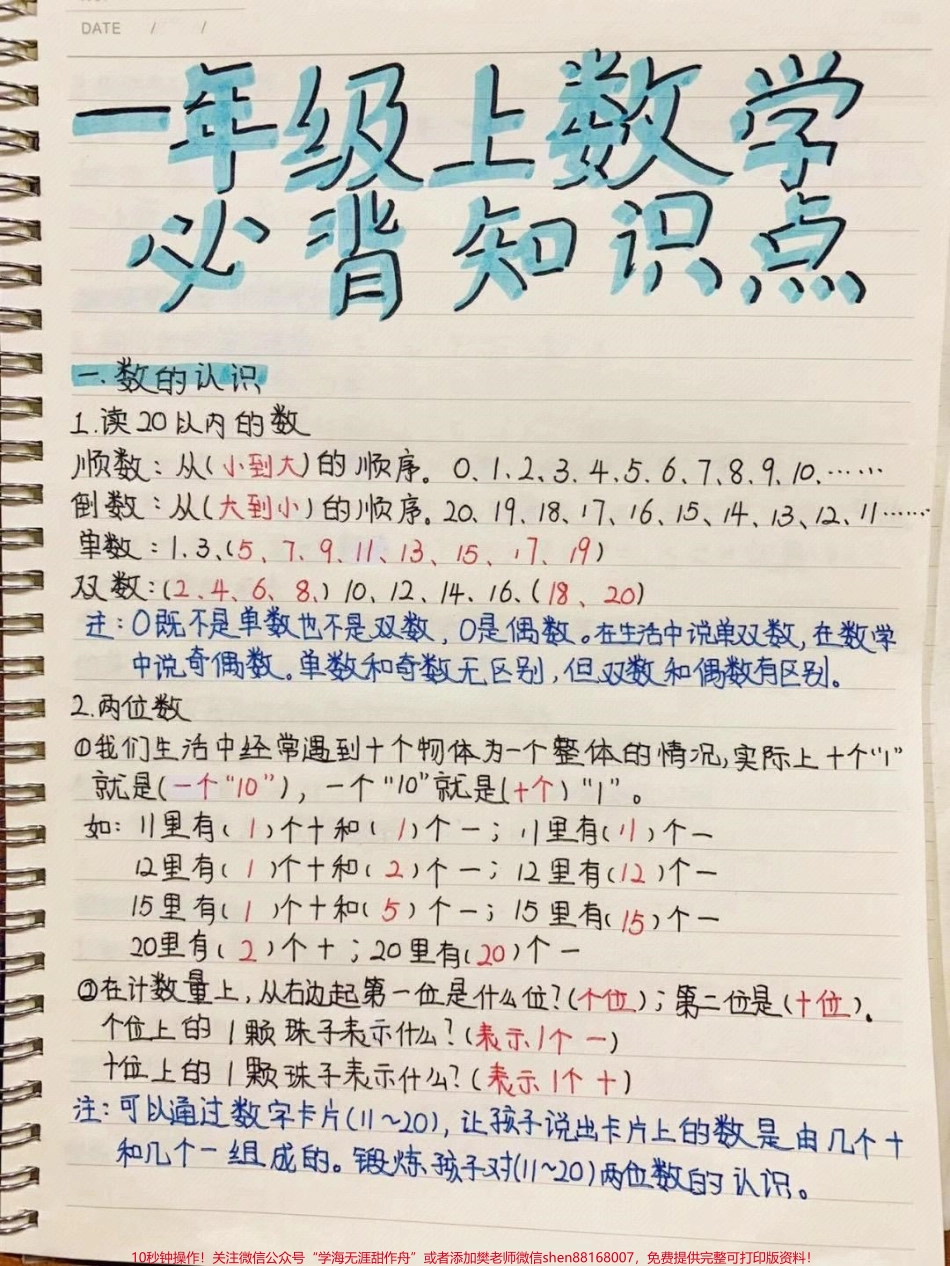 DATE / /
一年级上数学
必背知识点
一.数的认识
1.读20以内的数
顺数：从(小到大)的顺序。0、1、2、3、4、5、6、7、8、9、10、……
倒数：从(大到小)的顺序。20、19、18、17、16、15、14、13、12、11……
单数：1、3、(5、7、9、11、13、15、17、19)
双数：(2、4、6、8、)10、12、14、16、(18、20)
注：0既不是单数也不是双数，0是偶数。在生活中说单双数，在数学
中说奇偶数。单数和奇数无区别，但双数和偶数有区别。
2.两位数
①我们生活中经常遇到十个物体为一个整体的情况，实际上十个“1”
就是(一个“10”)，一个“10”就是(十个)“1”。
如：11里有(1)个十和(1)个一；11里有(11)个一
12里有(1)个十和(2)个一；12里有(12)个一
15里有(1)个十和(5)个一；15里有(15)个一
20里有(2)个十；20里有(20)个一
②在计数量上，从右边起第一位是什么位？(个位)；第二位是(十位)。
个位上的1颗珠子表示什么？(表示1个一)
十位上的1颗珠子表示什么？(表示1个十)
注：可以通过数字卡片(11~20)，让孩子说出卡片上的数是由几个十
和几个一组成的。锻炼孩子对(11~20)两位数的认识。
10秒钟操作！关注微信公众号“学海无涯甜作舟”或者添加樊老师微信shen88168007，免费提供完整可打印版资料！